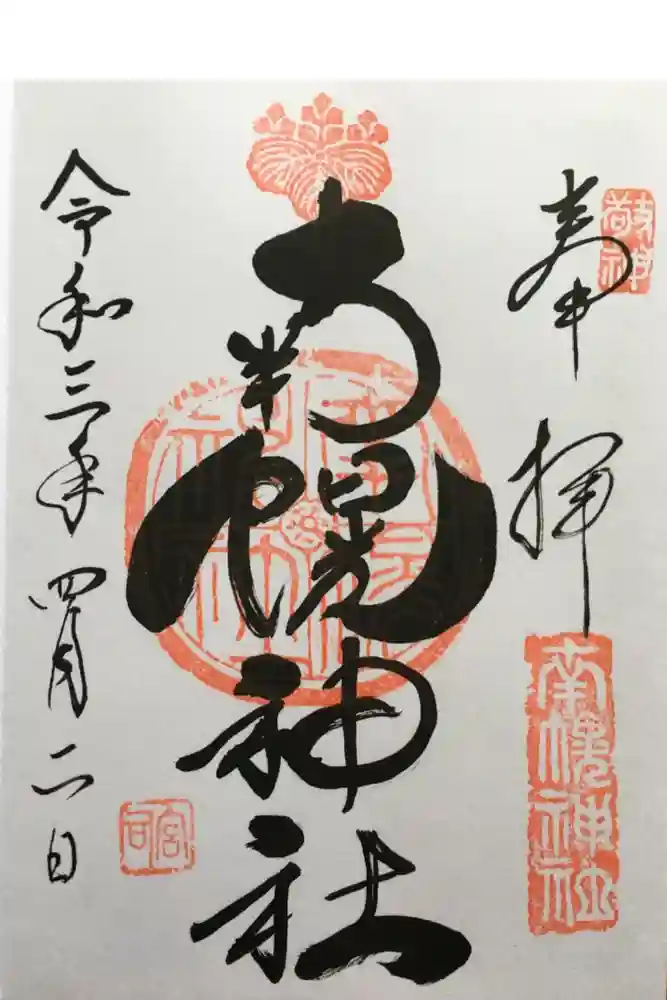 敬神
奉拝
南幌神社
南幌神社
令和三年四月二日
宮司